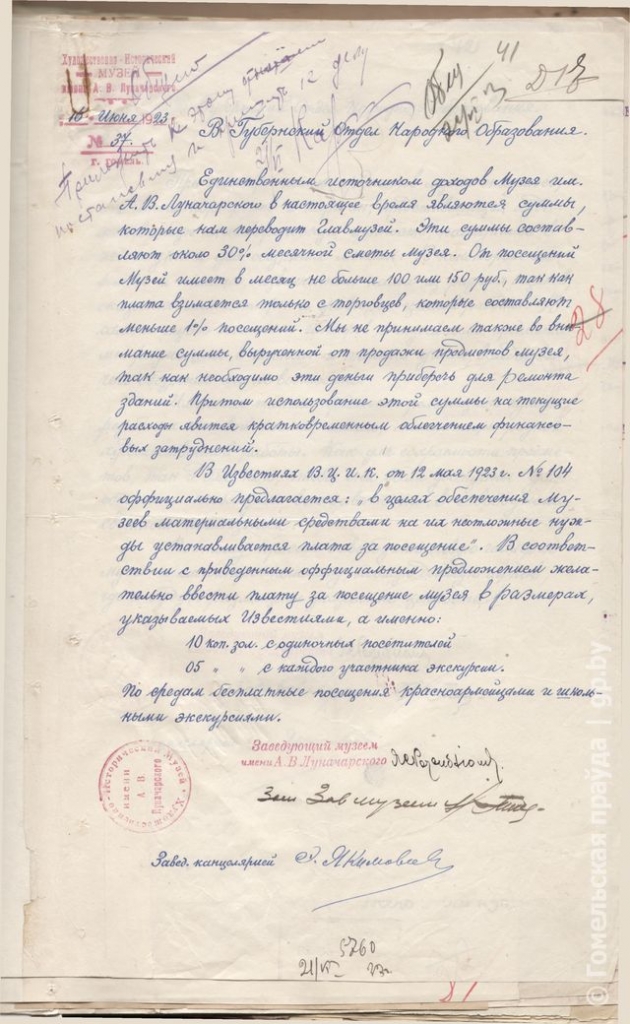 Художественно-Исторический
МУЗЕЙ
имени А. В. Луначарского
16 Июня 1923
№ 37.
г. Гомель.
41
В Губернский Отдел Народного Образования.
Единственным источником доходов Музея им.
А. В. Луначарского в настоящее время являются суммы,
которые нам переводит Главмузей. Эти суммы состав-
ляют около 30% месячной сметы музея. От посещений
Музей имеет в месяц не больше 100 или 150 руб., так как
плата взимается только с торговцев, которые составляют
меньше 1% посещений. Мы не принимаем также во вни-
мание суммы, вырученной от продажи предметов музея,
так как необходимо эти деньги приберечь для ремонта
зданий. Притом использование этой суммы на текущие
расходы явится кратковременным облегчением финансо-
вых затруднений.
В Известиях В.Ц.И.К. от 12 мая 1923 г. № 104
оффициально предлагается: „в целях обеспечения Му-
зеев материальными средствами на их неотложные нуж-
ды устанавливается плата за посещение". В соответ-
ствии с приведенным оффициальным предложением жела-
тельно ввести плату за посещение музея в размерах,
указываемых Известиями, а именно:
10 коп. зол. с одиночных посетителей
05 „ „ с каждого участника экскурсии.
По средам бесплатные посещения красноармейцами и школь-
ными экскурсиями.
28
Заведующий музеем
имени А. В Луначарского
Художественно-Исторический музей
имени
А. В.
Луначарского
Зам Зав музеем
Завед. канцелярией
5760
21/VI 23 г.
81
© Гомельская праўда | gp.by